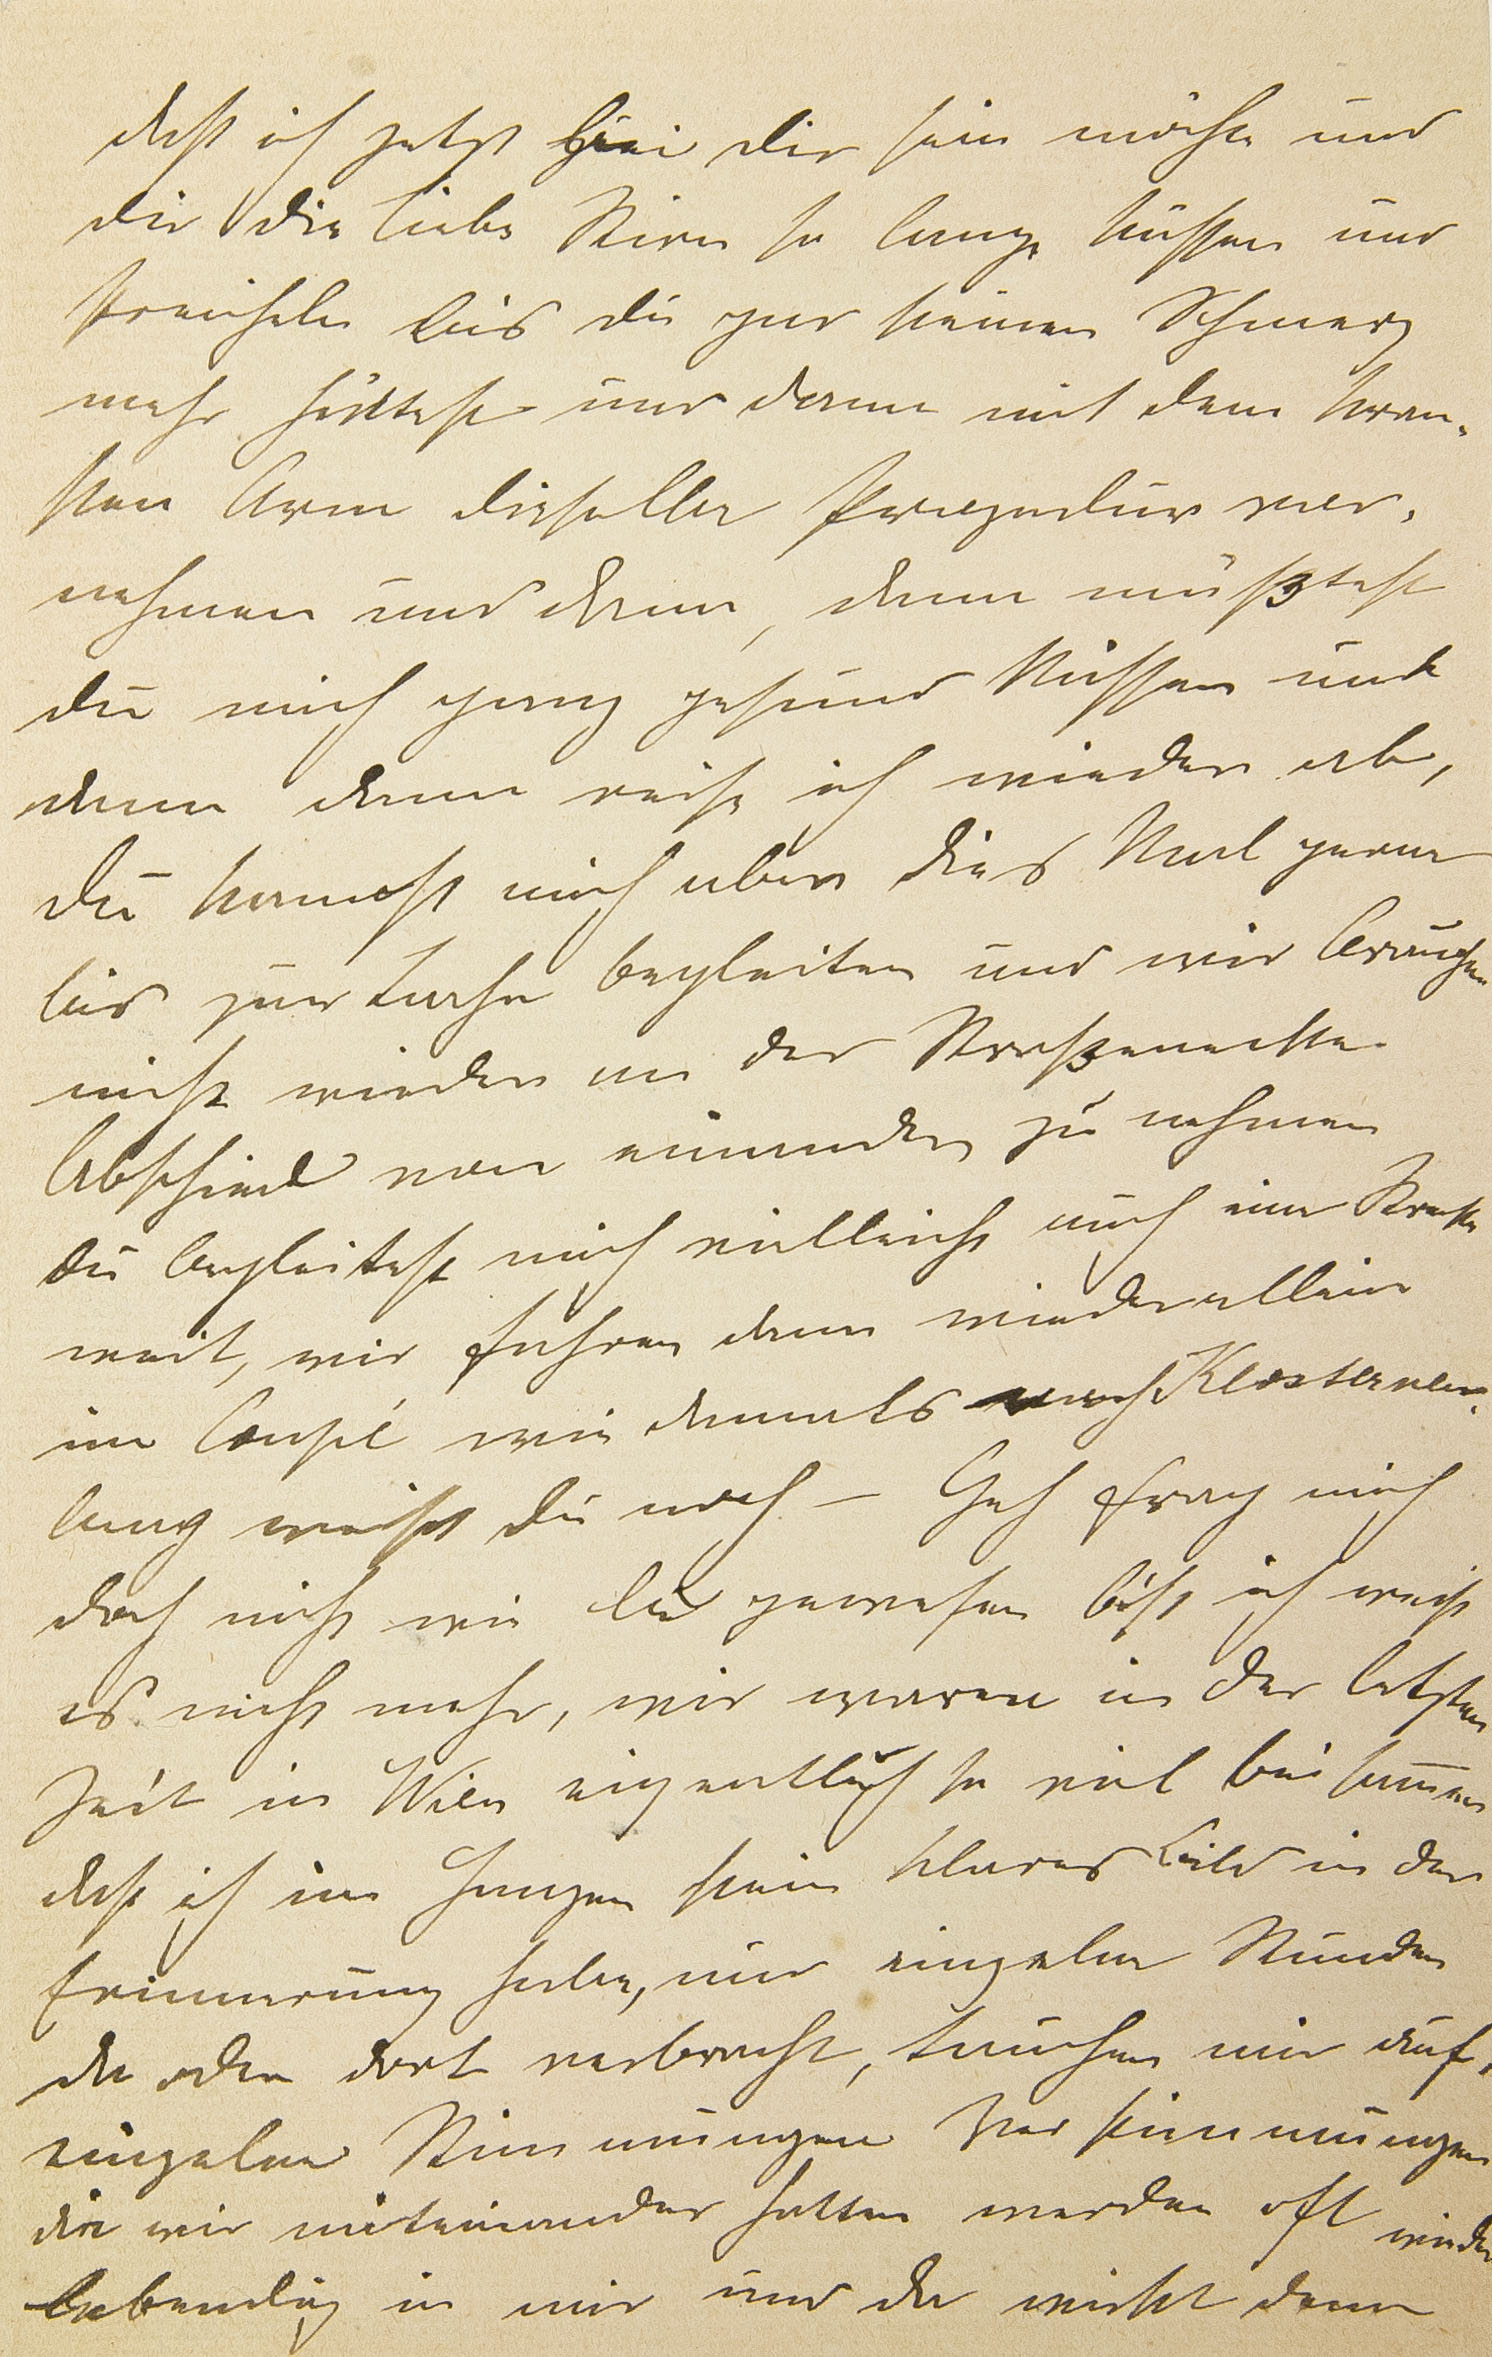 daß ich jetzt bei dir sein möchte und
dir die liebe Stirn so lange küssen und
streicheln bis du gar keinen Schmerz
mehr hättest und dann mit dem kran-
ken Arm dieselbe Prozedur vor-
nehmen und dann, dann müßtest
du mich ganz gesund küssen und
dann dann reise ich wieder ab,
du kannst mich aber dies Mal gerne
bis zur begleiten und wir brauchen
nicht wieder an der Straßenecke
Abschied von einander zu nehmen
du begleitest mich vielleicht auch eine Strecke
weit, wir fahren dann wieder allein
im Coupé wie damals nach Klosterneu-
burg weißt du noch – Geh frag mich
doch nicht wie du gewesen bist ich weiß
es nicht mehr, wir waren in der letzten
Zeit in Wien eigentlich so viel beisammen
daß ich im Ganzen kein klares Bild in der
Erinnerung habe, nur einzelne Stunden
da oder dort verbracht, tauchen mir auf,
einzelne Stimmungen Verstimmungen
die wir miteinander hatten werden oft wieder
lebendig in mir und da möcht dann